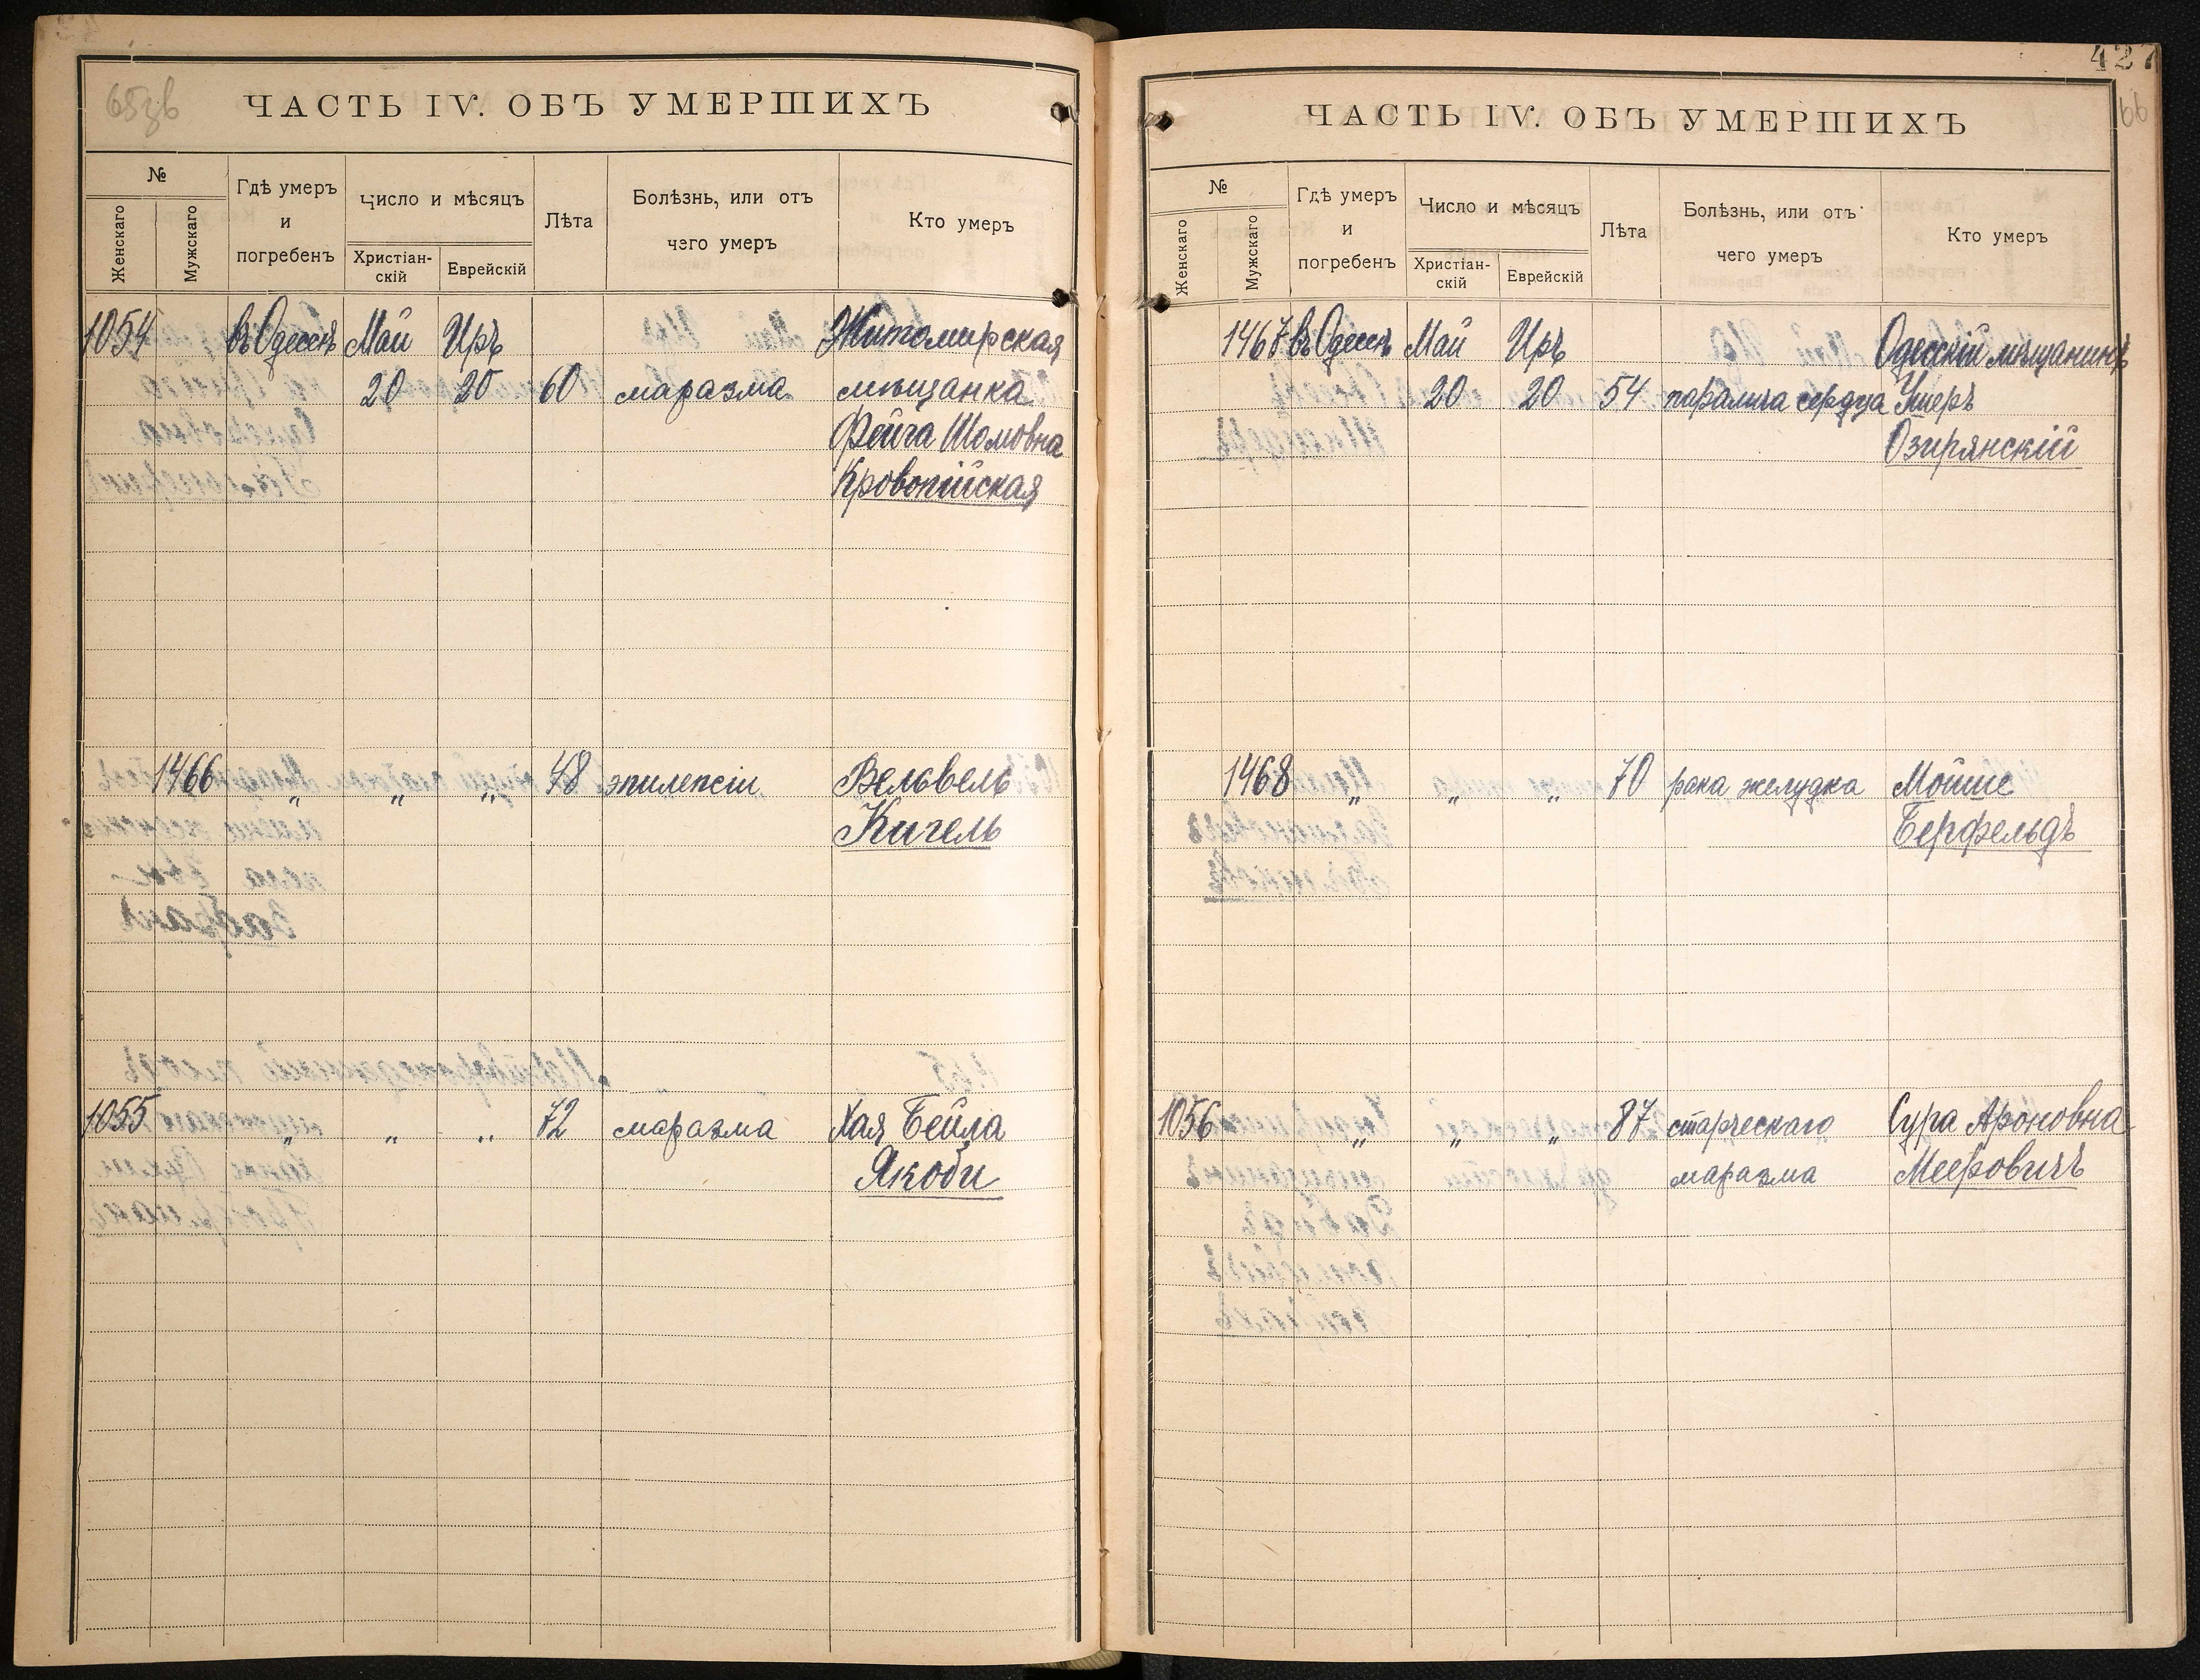 65зв
ЧАСТЬ IV. ОБЪ УМЕРШИХЪ
№
Женскаго
Мужскаго
Гдѣ умеръ
и
погребенъ
Число и мѣсяцъ
Христіан-
скій
Еврейскій
Лѣта
Болѣзнь, или отъ
чего умеръ
Кто умеръ
1054 въ Одессѣ Май Иръ Житомирская
20 20 60 маразма мѣщанка
Фейга Шомовна
Кровопійская
1466 „ „ „ 48 эпилепсіи Вельвель
Кигель
1055 „ „ „ 72 маразма Хая Бейла
Якоби
427
66
ЧАСТЬ IV. ОБЪ УМЕРШИХЪ
№
Женскаго
Мужскаго
Гдѣ умеръ
и
погребенъ
Число и мѣсяцъ
Христіан-
скій
Еврейскій
Лѣта
Болѣзнь, или отъ
чего умеръ
Кто умеръ
1467 въ Одессѣ Май Иръ Одесскій мѣщанинъ
20 20 54 паралича сердца Ушеръ
Озирянскій
1468 „ „ „ 70 рака желудка Мойше
Берфельдъ
1056 „ „ „ 87 старческаго Сура Ароновна
маразма Мееровичъ